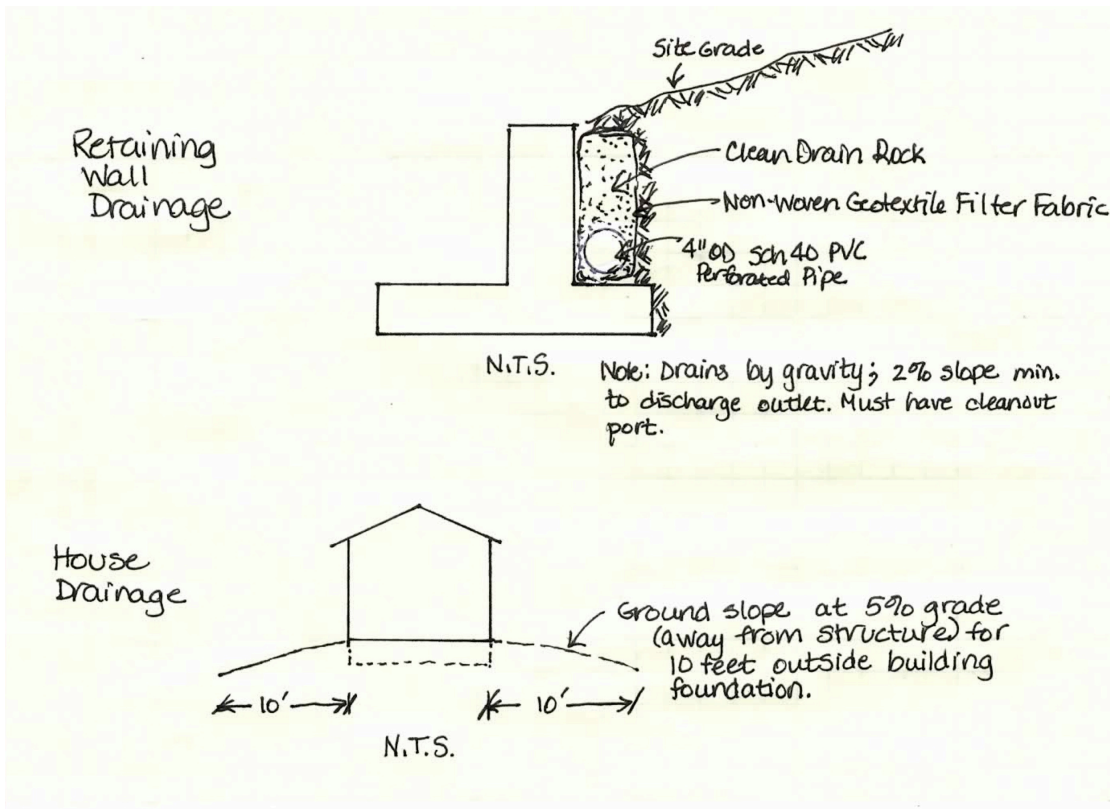 Site Grade
Retaining
Wall
Drainage
Clean Drain Rock
Non-Woven Geotextile Filter Fabric
4"OD Sch 40 PVC
Perforated Pipe
N.T.S.
Note: Drains by gravity; 2% slope min.
to discharge outlet. Must have cleanout
port.
House
Drainage
Ground slope at 5% grade
(away from structure) for
10 feet outside building
foundation.
10'
10'
N.T.S.